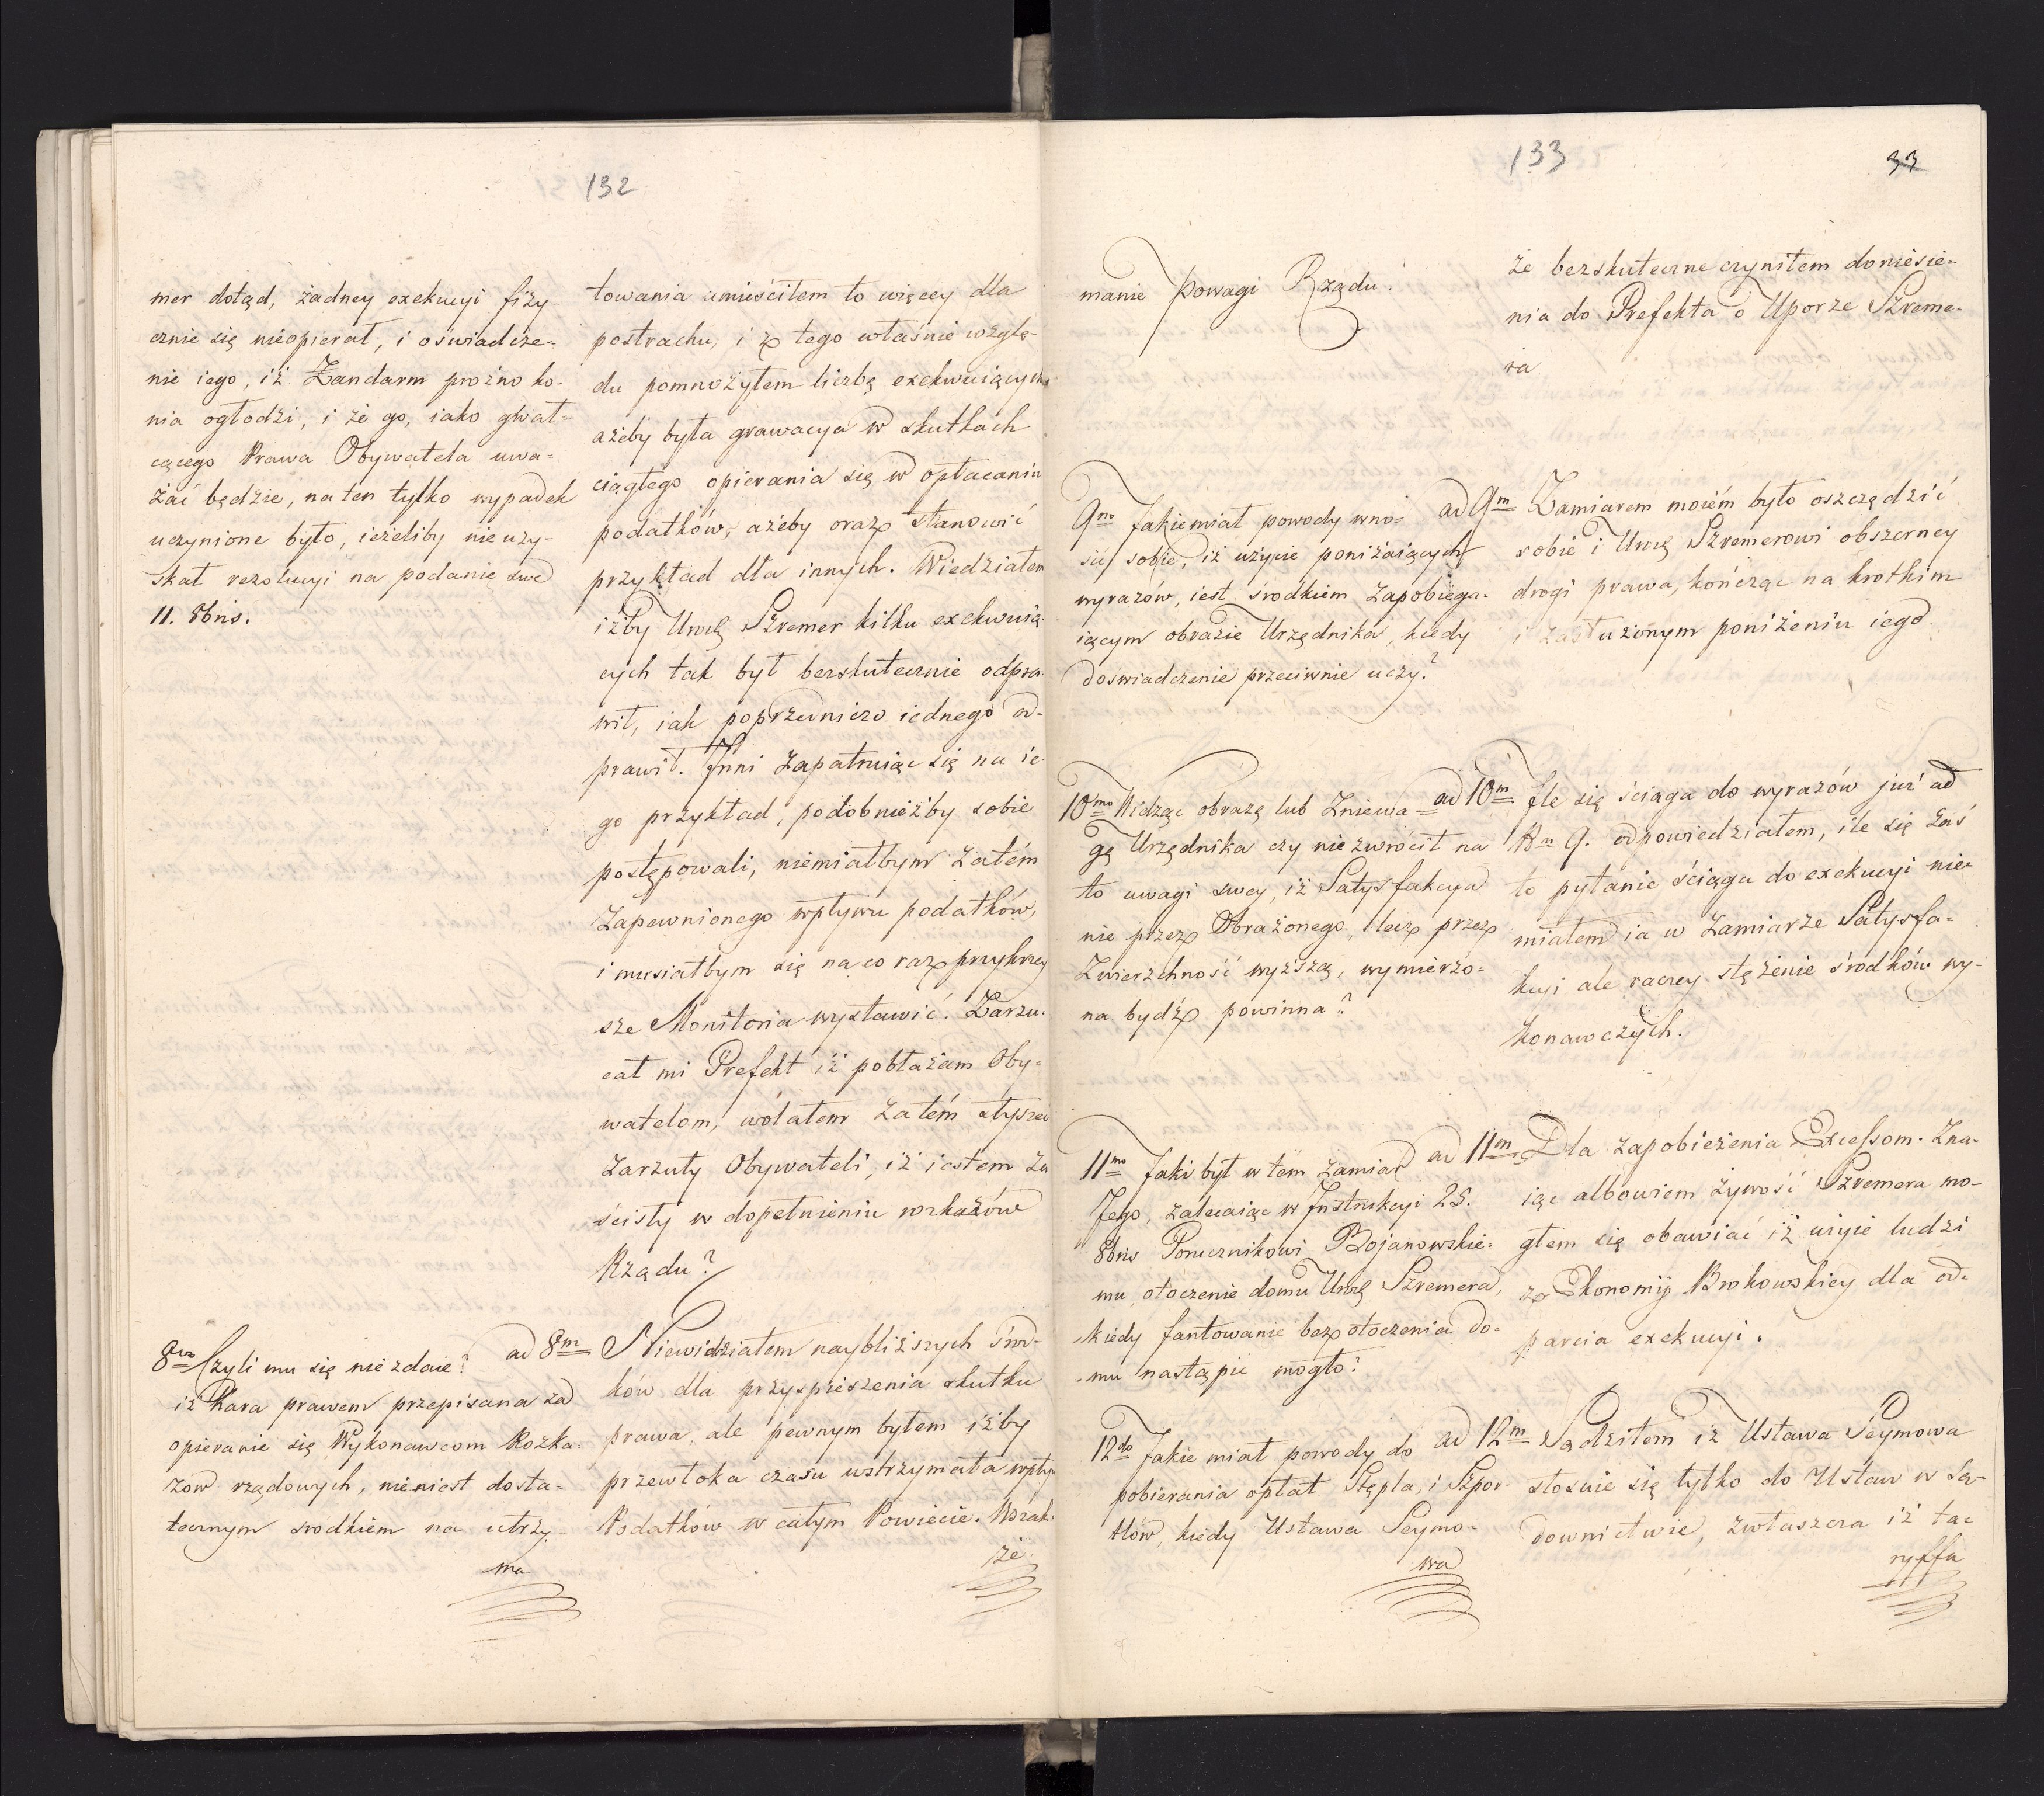 132
mer dotąd, żadney exekucyi fizy
cznie się nieopierał, i oświadcze-
nie iego, iż Żandarm prożno ko-
nia ogłodzi, i że go, iako gwał-
cącego Prawa Obywatela uwa-
żać będzie, na ten tylko wypadek
uczynione było, ieżeliby nie uzy-
skał rezolucyi na podanie swe
11. 8bris.
8vo Czyli mu się nie zdaie?
iż Kara prawem przepisana za
opieranie się Wykonawcom Rozka-
zow rządowych, nie iest dosta-
tecznym srodkiem na utrzy-
ma
towania umieściłem to więcey dla
postrachu, i z tego właśnie wzglę-
du pomnożyłem liczbę exekwuiących
ażeby była grawacya w skutkach
ciągłego opierania się w opłacaniu
podatków, ażeby oraz stanowić
przykład dla innych. Wiedziałem
iżby Urod Szremer kilku exekwuią-
cych tak był bezskutecznie odpra-
wił, iak poprzedniczo iednego od-
prawił. Inni zapatruiąc się na ie-
go przykład, podobnieżby sobie
postępowali, niemiałbym zatém
zapewnionego wpływu podatków,
i musiałbym się na co raz przykrzey
sze Monitoria wystawić. Zarzu-
cał mi Prefekt iż pobłażam Oby-
watelom, wolałem zatém słyszeć
zarzuty Obywateli, iż iestem za
ścisły w dopełnieniu rozkazów
Rządu?
ad 8m Niewidziałem naybliższych środ-
ków dla przyspieszenia skutku
prawa, ale pewnym byłem iżby
przewłoka czasu wstrzymała wpływ
Podatków w całym Powiecie. Wszak-
że
133
33
manie Powagi Rządu?
9no Jakie miał powody wno-
sić sobie, iż użycie poniżaiących
wyrazów, iest środkiem zapobiega-
iącym obrazie Urzędnika, kiedy
doświadczenie przeciwnie uczy?
10mo Widząc obrazę lub Zniewa-
gę Urzędnika czy nie zwrócił na
to uwagi swey, iż Satysfakcya
nie przez Obrażonego, lecz przez
Zwierzchność wyższą, wymierzo-
na bydź powinna?
11mo Jaki był w tem zamiar
Jego, zalecaiąc w Instrukcyi 25.
8bris Porucznikowi Bojanowskie-
mu, otoczenie domu Urod Szremera,
kiedy fantowanie bez otoczenia do-
mu nastąpić mogło?
12do Jakie miał powody do
pobierania opłat Stępla, i Szpor-
tlów, kiedy Ustawa Seymo-
wa
że bezskuteczne czyniłem doniesie-
nia do Prefekta o Uporze Szreme-
ra
ad 9m Zamiarem moiém było oszczędzić
sobie i Urod Szremerowi obszerney
drogi prawa, kończąc na krotkim
i zasłużonym poniżeniu iego
ad 10m Ile się ściąga do wyrazów już ad
Nm 9. odpowiedziałem, ile się zaś
to pytanie ściąga do exekucyi nie-
miałem ia w zamiarze Satysfa-
kcyi ale raczey stężenie środków wy-
konawczych.
ad 11m Dla zapobieżenia Excessom. Zna-
iąc albowiem żywość Szremera mo-
głem się obawiać iż użyie ludzi
z Ekonomij Bnkowskiey dla od-
parcia exekucyi.
ad 12m Sądziłem iż Ustawa Seymowa
stosuie się tylko do Ustaw w Są-
downictwie, zwłaszcza iż ta-
ryffa